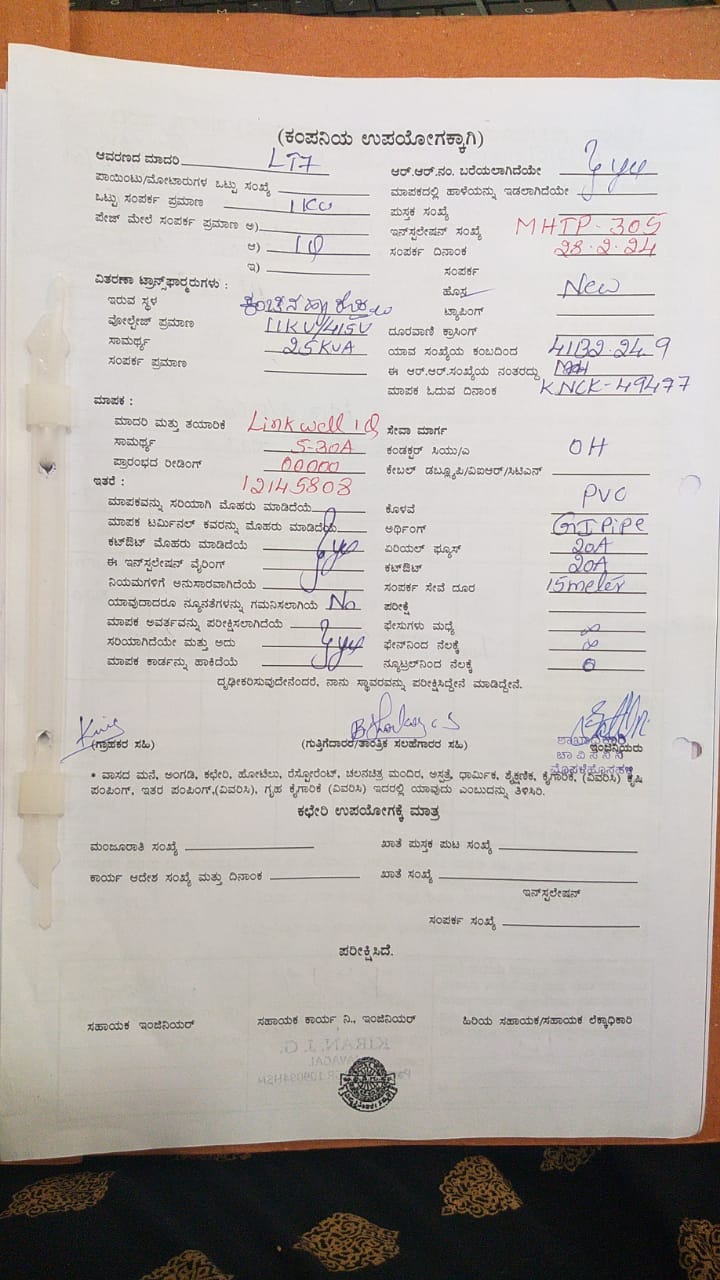 (ಕಂಪನಿಯ ಉಪಯೋಗಕ್ಕಾಗಿ)
ಆವರಣದ ಮಾದರಿ LT7
ಪಾಯಿಂಟು/ಮೋಟಾರುಗಳ ಒಟ್ಟು ಸಂಖ್ಯೆ
ಒಟ್ಟು ಸಂಪರ್ಕ ಪ್ರಮಾಣ 1KW
ಪೇಜ್ ಮೇಲೆ ಸಂಪರ್ಕ ಪ್ರಮಾಣ ಅ)
ಆ) 1Φ
ಇ)
ವಿತರಣಾ ಟ್ರಾನ್ಸ್‌ಫಾರ್‍ಮರುಗಳು :
ಇರುವ ಸ್ಥಳ
ವೋಲ್ಟೇಜ್ ಪ್ರಮಾಣ 11KV/415V
ಸಾಮರ್ಥ್ಯ 25KVA
ಸಂಪರ್ಕ ಪ್ರಮಾಣ
ಮಾಪಕ :
ಮಾದರಿ ಮತ್ತು ತಯಾರಿಕೆ Linkwell 1Φ
ಸಾಮರ್ಥ್ಯ 5-30A
ಪ್ರಾರಂಭದ ರೀಡಿಂಗ್ 00000
ಇತರೆ : 12145808
ಮಾಪಕವನ್ನು ಸರಿಯಾಗಿ ಮೊಹರು ಮಾಡಿದೆಯೆ
ಮಾಪಕ ಟರ್ಮಿನಲ್ ಕವರನ್ನು ಮೊಹರು ಮಾಡಿದೆಯೆ
ಕಟ್‌ಔಟ್ ಮೊಹರು ಮಾಡಿದೆಯೆ yes
ಈ ಇನ್‌ಸ್ಟಲೇಷನ್ ವೈರಿಂಗ್
ನಿಯಮಗಳಿಗೆ ಅನುಸಾರವಾಗಿದೆಯೆ
ಯಾವುದಾದರೂ ನ್ಯೂನತೆಗಳನ್ನು ಗಮನಿಸಲಾಗಿಯೆ No
ಮಾಪಕ ಅವರ್ತವನ್ನು ಪರೀಕ್ಷಿಸಲಾಗಿದೆಯೆ
ಸರಿಯಾಗಿದೆಯೇ ಮತ್ತು ಅದು yes
ಮಾಪಕ ಕಾರ್ಡನ್ನು ಹಾಕಿದೆಯೆ
ಆರ್.ಆರ್.ನಂ. ಬರೆಯಲಾಗಿದೆಯೇ yes
ಮಾಪಕದಲ್ಲಿ ಹಾಳೆಯನ್ನು ಇಡಲಾಗಿದೆಯೇ
ಪುಸ್ತಕ ಸಂಖ್ಯೆ
ಇನ್‌ಸ್ಟಲೇಷನ್ ಸಂಖ್ಯೆ MHTP-305
ಸಂಪರ್ಕ ದಿನಾಂಕ 28.2.24
ಸಂಪರ್ಕ
ಹೊಸ New
ಟ್ಯಾಪಿಂಗ್
ದೂರವಾಣಿ ಕ್ರಾಸಿಂಗ್
ಯಾವ ಸಂಖ್ಯೆಯ ಕಂಬದಿಂದ
ಈ ಆರ್.ಆರ್.ಸಂಖ್ಯೆಯ ನಂತರದ್ದು
ಮಾಪಕ ಓದುವ ದಿನಾಂಕ KNCK-49477
ಸೇವಾ ಮಾರ್ಗ
ಕಂಡಕ್ಟರ್ ಸಿಯು/ಎ OH
ಕೇಬಲ್ ಡಬ್ಲ್ಯೂಪಿ/ವಿಐಆರ್/ಸಿಟಿಎಸ್
ಕೊಳವೆ PVC
ಅರ್ಥಿಂಗ್ GI Pipe
ಏರಿಯಲ್ ಫ್ಯೂಸ್ 20A
ಕಟ್‌ಔಟ್ 20A
ಸಂಪರ್ಕ ಸೇವೆ ದೂರ 15meter
ಪರೀಕ್ಷೆ
ಫೇಸುಗಳು ಮಧ್ಯೆ ∞
ಫೇಸ್‌ನಿಂದ ನೆಲಕ್ಕೆ ∞
ನ್ಯೂಟ್ರಲ್‌ನಿಂದ ನೆಲಕ್ಕೆ 0
ದೃಢೀಕರಿಸುವುದೇನೆಂದರೆ, ನಾನು ಸ್ಥಾವರವನ್ನು ಪರೀಕ್ಷಿಸಿದ್ದೇನೆ ಮಾಡಿದ್ದೇನೆ.
(ಗ್ರಾಹಕರ ಸಹಿ) (ಗುತ್ತಿಗೆದಾರರ/ತಾಂತ್ರಿಕ ಸಲಹೆಗಾರರ ಸಹಿ) ಇಂಜಿನಿಯರು
ಶಾಖಾಧಿಕಾರಿ
* ವಾಸದ ಮನೆ, ಅಂಗಡಿ, ಕಛೇರಿ, ಹೋಟೆಲು, ರೆಸ್ಟೋರೆಂಟ್, ಚಲನಚಿತ್ರ ಮಂದಿರ, ಅಸ್ಪತ್ರೆ, ಧಾರ್ಮಿಕ, ಶೈಕ್ಷಣಿಕ, ಕೈಗಾರಿಕೆ, (ವಿವರಿಸಿ) ಕೃಷಿ
ಪಂಪಿಂಗ್, ಇತರ ಪಂಪಿಂಗ್,(ವಿವರಿಸಿ), ಗೃಹ ಕೈಗಾರಿಕೆ (ವಿವರಿಸಿ) ಇದರಲ್ಲಿ ಯಾವುದು ಎಂಬುದನ್ನು ತಿಳಿಸಿರಿ.
ಕಛೇರಿ ಉಪಯೋಗಕ್ಕೆ ಮಾತ್ರ
ಮಂಜೂರಾತಿ ಸಂಖ್ಯೆ ಖಾತೆ ಪುಸ್ತಕ ಪುಟ ಸಂಖ್ಯೆ
ಕಾರ್ಯ ಆದೇಶ ಸಂಖ್ಯೆ ಮತ್ತು ದಿನಾಂಕ ಖಾತೆ ಸಂಖ್ಯೆ
ಇನ್‌ಸ್ಟಲೇಷನ್
ಸಂಪರ್ಕ ಸಂಖ್ಯೆ
ಪರೀಕ್ಷಿಸಿದೆ.
ಸಹಾಯಕ ಇಂಜಿನಿಯರ್ ಸಹಾಯಕ ಕಾರ್ಯ ನಿ., ಇಂಜಿನಿಯರ್ ಹಿರಿಯ ಸಹಾಯಕ/ಸಹಾಯಕ ಲೆಕ್ಕಾಧಿಕಾರಿ